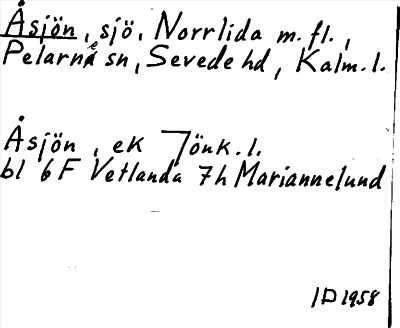 Åsjön, sjö, Norrlida m.fl.,
Pelarne sn, Sevede hd, Kalm.l.
Åsjön, ek Jönk.l.
bl 6F Vetlanda 7h Mariannelund
ID 1958